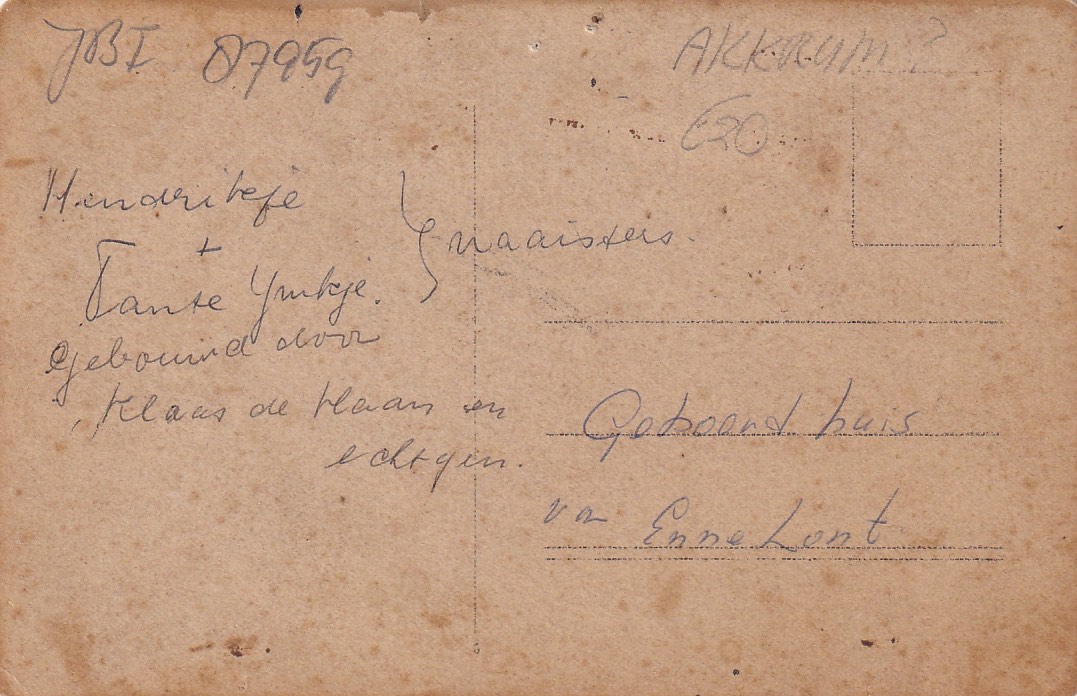 JBI 07959
AKKRUM?
€20
Hendrikje
+
Tante Ymkje.
} naaisters.
Gebouwd door
Klaas de Haan en
echtgen.
Geboort huis
van Enne Lont